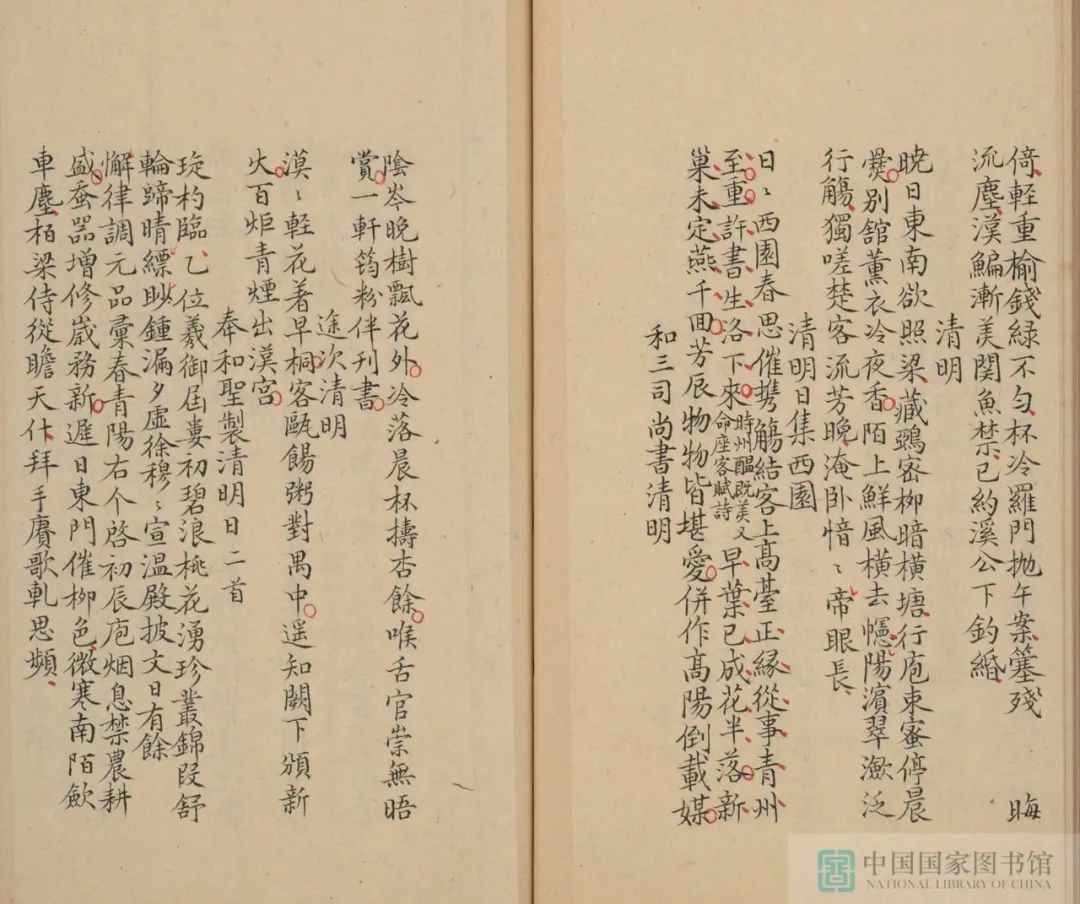 倚輕重榆錢綠不勻杯冷羅門抛午案簺殘　晦
流塵漢鯿漸美関魚禁已約溪公下釣緡
清明
曉日東南欲照梁藏鵶宻柳暗横塘行庖束蜜停晨
爨別舘薫衣冷夜香陌上鮮風横去幰陽濱翠瀲泛
行觴獨嗟楚客流芳晚淹卧愔〻帝眼長
清明日集西園
日〻西園春思催携觴結客上髙臺正緣從事青州
至重許書生洛下來時州醖既美又命座客賦詩早葉已成花半落新
巢未定燕千囬芳辰物物皆堪愛併作髙陽倒載媒
和三司尚書清明
陰岑晚樹飄花外冷落晨杯擣杏餘喉舌官崇無晤
賞一軒筠粉伴刊書
途次清明
漠〻輕花著早桐客甌餳粥對禺中遥知闕下頒新
火百炬青煙出漢宫
奉和聖製清明日二首
琁杓臨乙位羲御屆婁初碧浪桃花湧珍叢錦段舒
輪蹄晴縹眇鍾漏夕虚徐穆〻宣温殿披文日有餘
懈律調元品彚春青陽右个啓初辰庖烟息禁農耕
盛蚕器增修嵗務新遲日東門催柳色微寒南陌歛
車塵柏梁侍從瞻天什拜手賡歌軋思頻
中国国家图书馆
NATIONAL LIBRARY OF CHINA